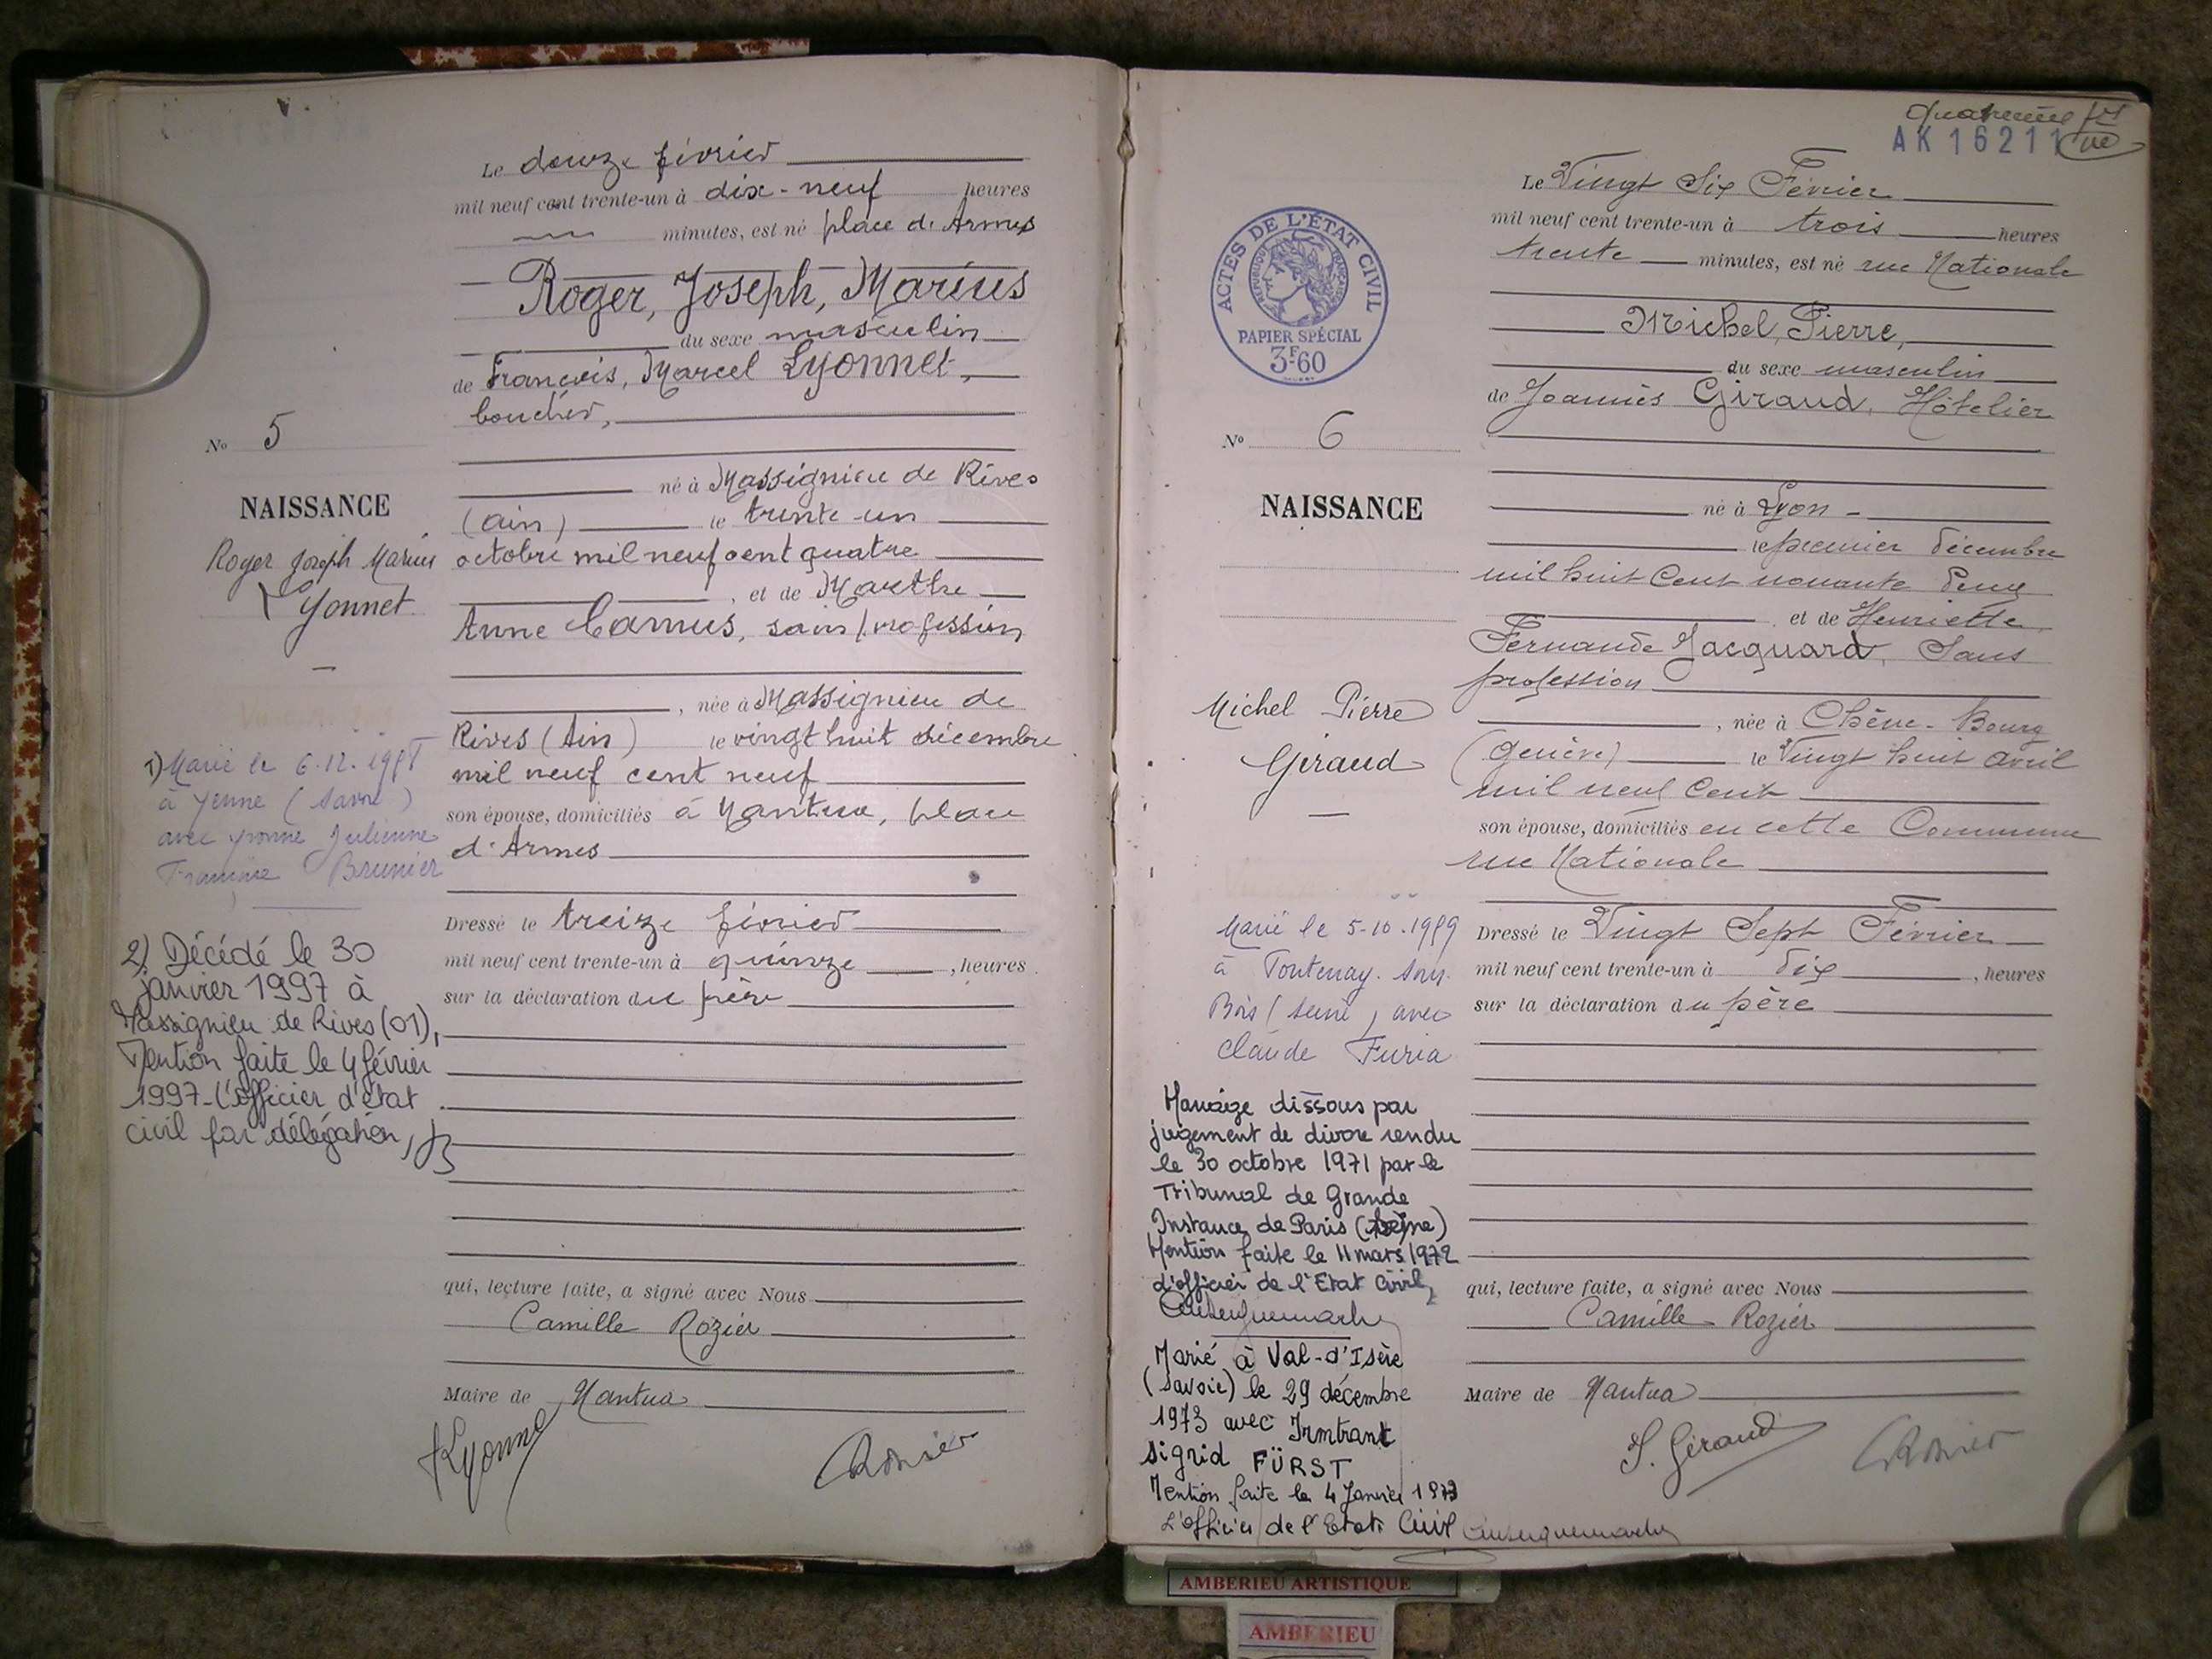 Le douze février
mil neuf cent trente-un à dix-neuf heures
minutes, est né place d'Armes
Roger, Joseph, Marius
du sexe masculin
de François, Marcel Lyonnet,
boucher,
né à Massignieu de Rives
(ain) le trente-un
octobre mil neuf cent quatre
, et de Marthe
Anne Camus, sans profession
, née à Massignieu de
Rives (Ain) le vingt huit décembre
mil neuf cent neuf
son épouse, domiciliés à Nantua, place
d'Armes
Dressé le treize février
mil neuf cent trente-un à quinze , heures
sur la déclaration du père
qui, lecture faite, a signé avec Nous
Camille Rozier
Maire de Nantua
Lyonnet
Rozier
No 5
NAISSANCE
Roger Joseph Marius
Lyonnet
1) Marié le 6.12.
à Yenne (Savoie)
avec Yvonne Julienne
Brunier
2) Décédé le 30
janvier 1997 à
Massignieu de Rives (01),
Mention faite le 4 février
1997 - L'officier d'état
civil par délégation,
AK 16211
ACTES DE L'ÉTAT CIVIL
RÉPUBLIQUE FRANÇAISE
PAPIER SPÉCIAL
3F60
Le Vingt Six Février
mil neuf cent trente-un à trois heures
trente minutes, est né rue Nationale
Michel, Pierre,
du sexe masculin
de Joannès Giraud, Hôtelier
né à Lyon -
le premier décembre
mil huit Cent nonante deux
et de Henriette
Fernande Jacquard, Sans
profession
, née à Chêne-Bourg
(Genève) le Vingt huit avril
mil neuf Cent
son épouse, domiciliés en cette Commune
rue Nationale
Dressé le Vingt Sept Février
mil neuf cent trente-un à dix , heures
sur la déclaration du père
qui, lecture faite, a signé avec Nous
Camille Rozier
Maire de Nantua
J. Giraud
Rozier
No 6
NAISSANCE
Michel Pierre
Giraud
Marié le 5-10-1959
à Fontenay-sous-
Bois (Seine) avec
Claude Furia
Mariage dissous par
jugement de divorce rendu
le 30 octobre 1971 par le
Tribunal de Grande
Instance de Paris (Seine)
Mention faite le 11 mars 1972
L'officier de l'Etat Civil,
Marié à Val-d'Isère
(Savoie) le 29 décembre
1973 avec Irmtraut
Sigrid FÜRST
Mention faite le 4 Janvier 1973
L'officier de l'Etat Civil
AMBERIEU ARTISTIQUE
AMBERIEU